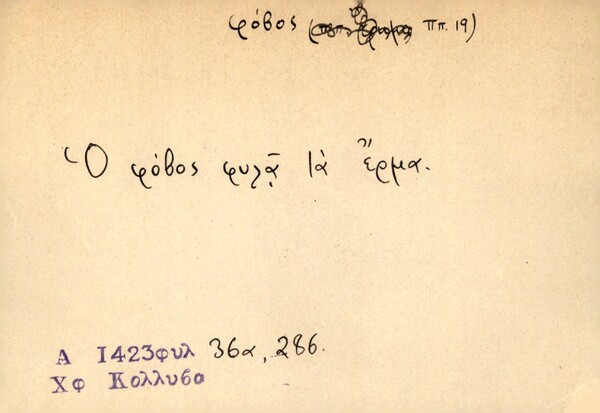 φόβος ( Ππ. 19)
Ὁ φόβος φυλᾷ τὰ ἔρμα.
Α 1423φυλ 36α, 286.
Χφ Κολλυβα